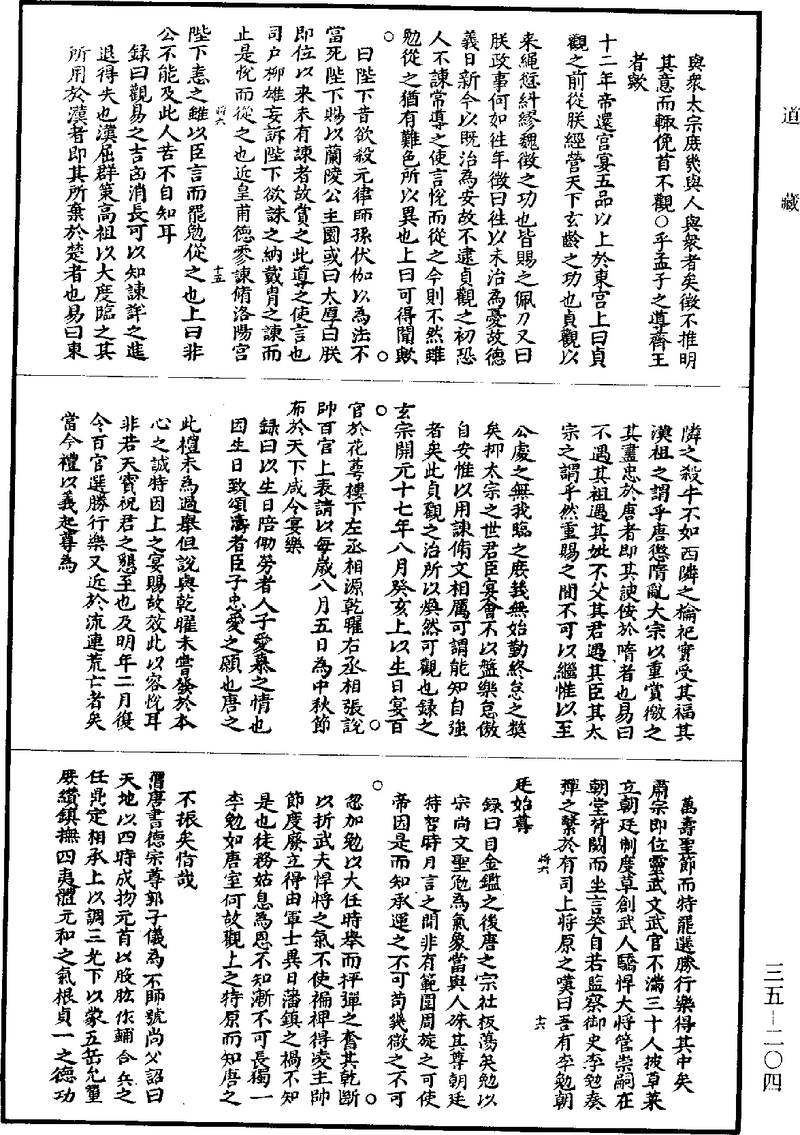 道藏
與衆太宗庶幾與人與衆者矣徵不推明
其意而輒俛首不觀○乎孟子之導齊王
者歟
十二年帝還宮宴五品以上於東宮上曰貞
觀之前從朕經營天下玄齡之功也貞觀以
来繩愆糾繆魏徵之功也皆賜之佩刀又曰
朕政事何如往年徵曰往以未治為憂故德
義日新今以既治為安故不逮貞觀之初恐
人不諫常導之使言悅而從之今則不然雖
勉從之猶有難色所以異也上曰可得聞歟
曰陛下昔欲殺元律師孫伏伽以為法不
當死陛下賜以蘭陵公主園或曰太厚曰朕
即位以来未有諫者故賞之此導之使言也
司戶柳雄妄訴陛下欲誅之納戴胄之諫而
止是悅而從之也近皇甫德參諫脩洛陽宮
陛下恚之雖以臣言而罷勉從之也上曰非
公不能及此人苦不自知耳
録曰觀易之吉凶消長可以知諫諍之進
退得失也漢屈群策高祖以大度臨之其
所用於漢者即其所棄於楚者也易曰東
隣之殺牛不如西隣之禴祀實受其福其
漢祖之謂乎唐懲隋亂大宗以重賞徼之
其盡忠於唐者即其諛佞於隋者也易曰
不遇其祖遇其妣不父其君遇其臣其太
宗之謂乎然重賜之間不可以繼惟以至
公處之無我臨之庶幾無始勤終怠之弊
矣抑太宗之世君臣宴會不以盤樂怠傲
自安惟以用諫脩文相厲可謂能知自強
者矣此貞觀之治所以煥然可觀也録之
玄宗開元十七年八月癸亥上以生日宴百
官於花萼樓下左丞相源乾曜右丞相張說
帥百官上表請以每歲八月五日為中秋節
布於天下咸令宴樂
録曰以生日陪劬勞者人子愛慕之情也
因生日致頌禱者臣子忠愛之願也唐之
此禮未為過舉但說與乾曜未嘗發於本
心之誠特因上之宴賜故效此以容悅耳
非若天寶祝君之懇至也及明年二月復
令百官選勝行樂又近於流連荒亡者矣
當今禮以義起尊為
萬壽聖節而特罷選勝行樂得其中矣
肅宗即位靈武文武官不滿三十人披草萊
立朝廷制度草創武人驕悍大將管崇嗣在
朝堂背闕而坐言笑自若監察御史李勉奏
彈之繫於有司上特原之嘆曰吾有李勉朝
廷始尊
録曰自金鑑之後唐之宗社板蕩矣勉以
宗尚文聖勉為氣象當與人殊其尊朝廷
特智時月言之間非有範圍周旋之可使
帝因是而知承運之不可苟幾微之不可
忽加勉以大任時舉而抨彈之奮其乾斷
以折武夫悍將之氣不使褊裨得凌主帥
節度廢立得由軍士異日藩鎮之禍不知
是也徒務姑息為恩不知漸不可長獨一
李勉如唐室何故觀上之特原而知唐之
不振矣惜哉
漕唐書德宗尊郭子儀為不師號尚父詔曰
天地以四時成物元首以股肱作輔合兵之
任鼎定相承上以調三光下以蒙五岳允釐
庶績鎮撫四夷體元和之氣根貞一之德功
三五-二〇四